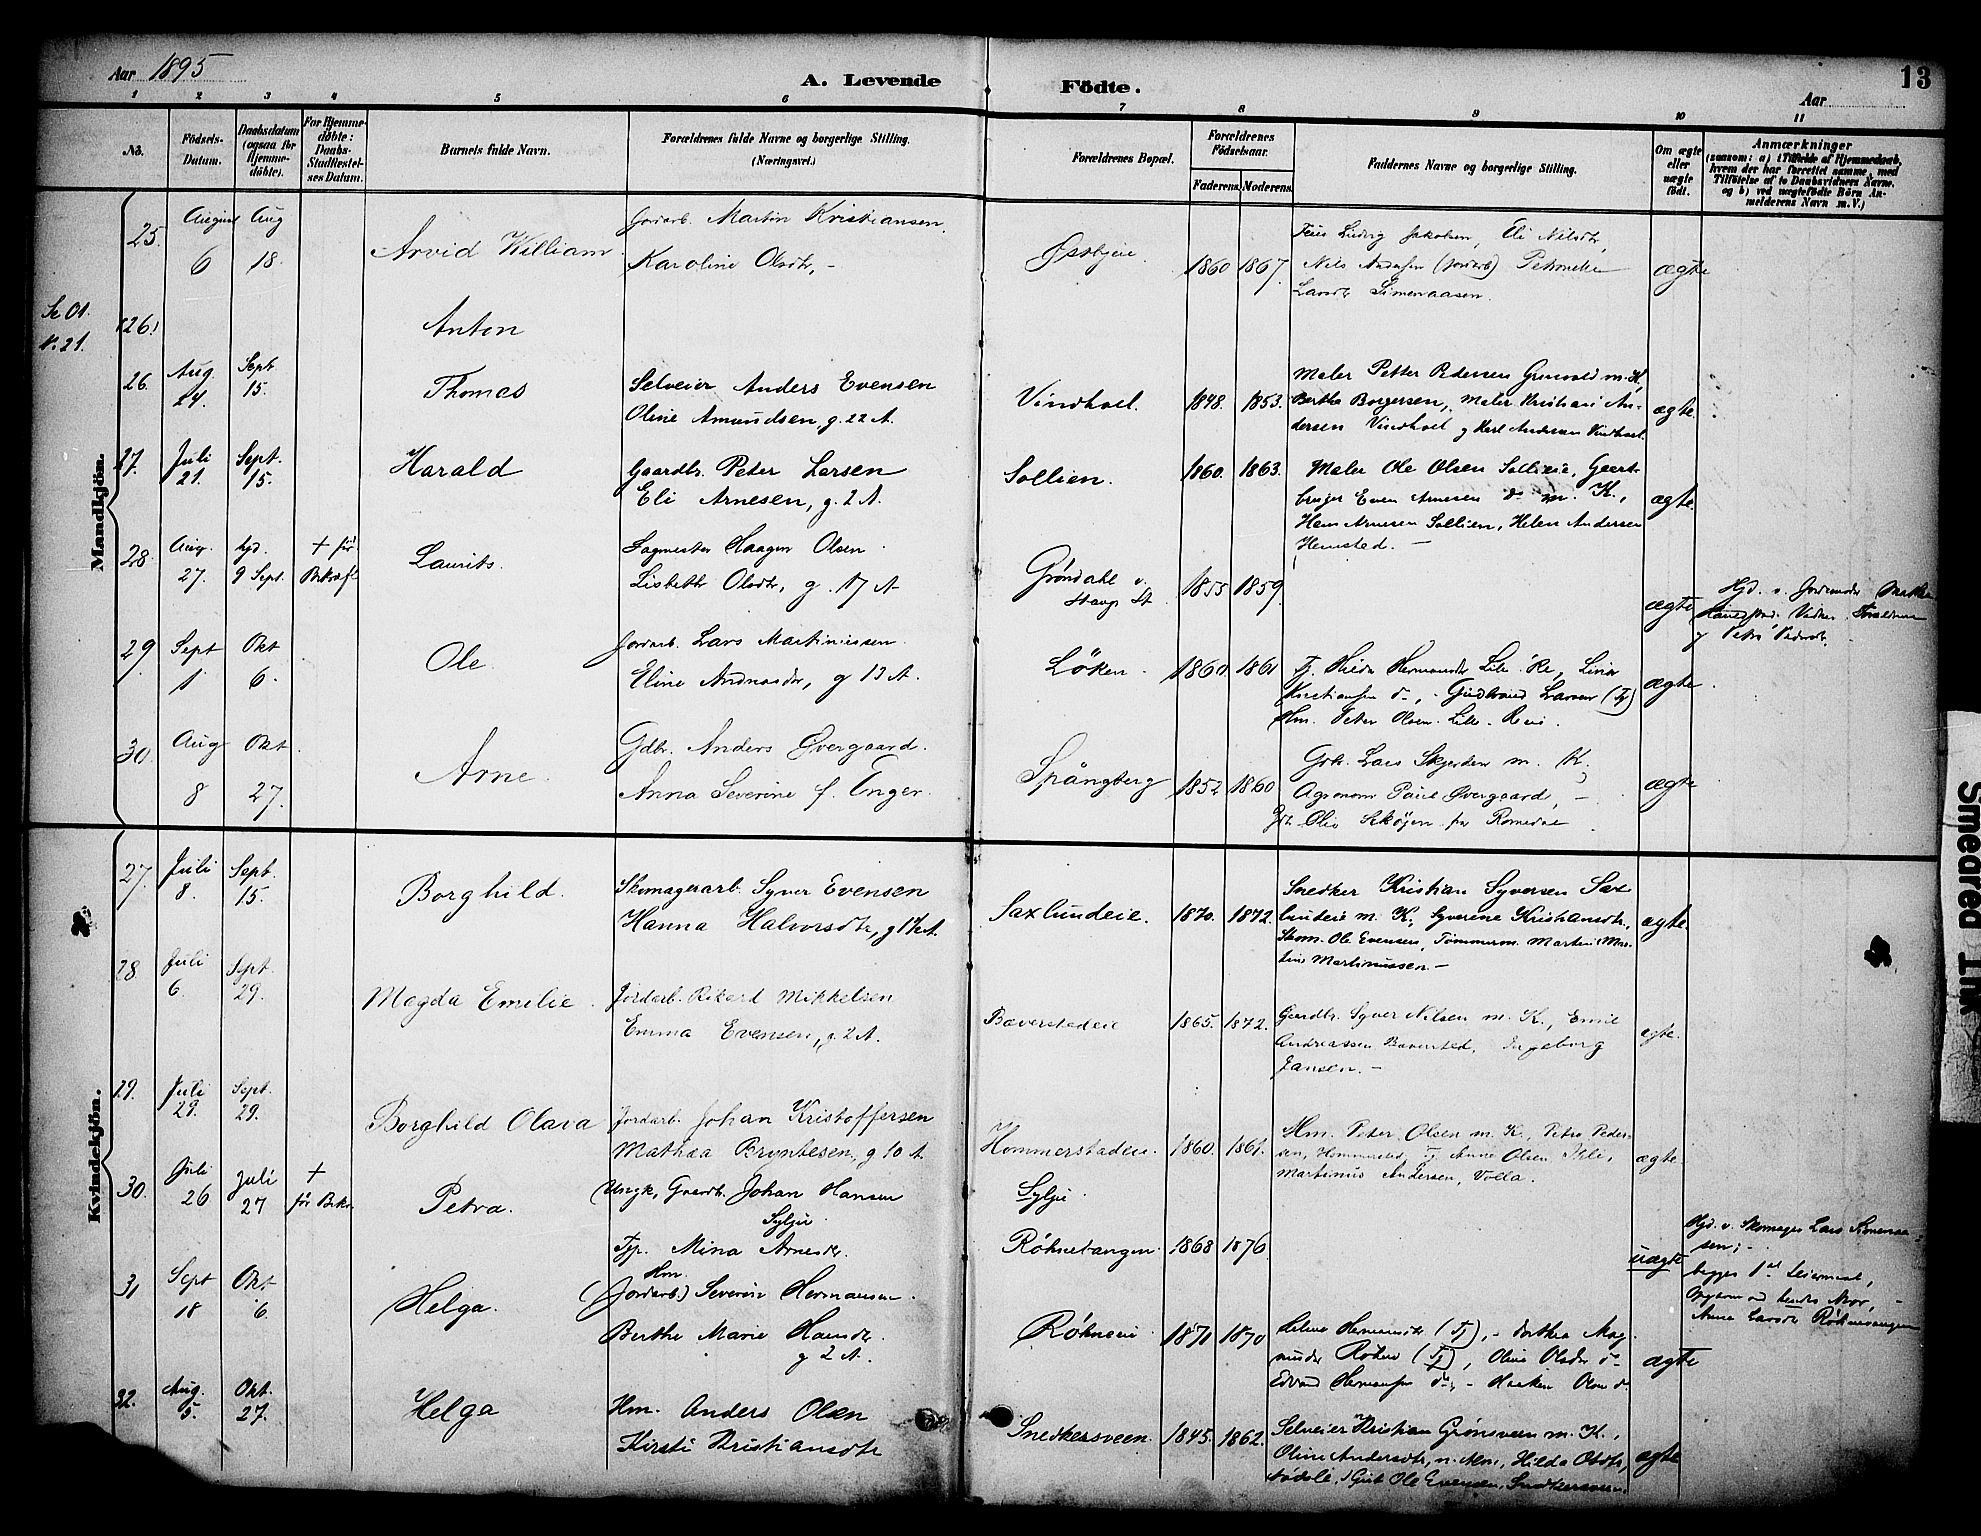 Aar 1895
A. Levende Födte.
13
Aar
1 2 3 4 5 6 7 8 9 10 11
No. Födsels-Datum. Daabsdatum (ogsaa for Hjemme-döbte). For Hjemme-döbte: Daabs-Stadfæstel-ses Datum. Barnets fulde Navn. Forældrenes fulde Navne og borgerlige Stilling. (Næringsvei.) Forældrenes Bopæl. Forældrenes Födselsaar. Faderens. Moderens. Faddernes Navne og borgerlige Stilling. Om ægte eller uægte födt. Anmærkninger (saasom: a) i Tilfælde af Hjemmedaab, hvem der har forrettet samme, med Tilföielse af to Daabsvidners Navne, og b) ved uægtefödte Börn An-melderens Navn m. V.)
Mandkjön.
25. August 6 Aug 18. Arvid William Jordarb. Martin Kristiansen.
Karoline Olsdtr, - Østbyeie. 1860 1867. Ludvig Jakobsen, Eli Nilsdtr,
Nils Andersen (Jordarb) Petronelle
Larsdtr Simenaasen. ægte
26. Anton
26. Aug. 24. Sept 15. Thomas Selveier Anders Evensen
Oline Amundsen, g. 22 A. Vindhoel. 1848. 1853. Maler Petter Pedersen Grinvold m. K,
Berthe Borgersen, Maler Kristian An-
dersen Vindhoel g Karl Andersen Vindhoel. ægte
27. Juli 21. Sept. 15. Harald Gaardbr. Peter Larsen
Eli Arnesen, g. 2 A. Sollien. 1860. 1863. Maler Ole Olsen Sollieie, Gaard-
bruger Even Arnesen do m. K.,
Hans Arnesen Sollien, Helen Andersen
Hemsted. - ægte
28. Aug. 27. hjd. 9 Sept. + för Bekræft Laurits. Sagmester Haagen Olsen
Lisbeth Olsdtr, g. 17 A Gröndahl v.
Stange St. 1855 1859. ægte Hjd. v. Jordemoder
Vidner Forældrene
g Petra
29. Sept 1 Okt 6. Ole. Jordarb. Lars Martinissen.
Eline Andreasdtr, g 13 A. Löken. 1860. 1861 Tj. Hilda Hermansdtr Lille Re,
Kristiansen do, - Gudbrand Larsen (Tj)
Hm. Peter Olsen Lille-Reeie. ægte.
30. Aug 8 Okt. 27. Arne. Gdbr. Anders Øvergaard.
Anna Severine f. Enger. Spångberg 1852 1860 Grb. Lars Skjerden m. K.
Agronom Paul Øvergaard, -
Olia fra Romedal ægte
Kvindekjön.
27. Juli 8. Sept. 15. Borghild. Skomagerarb. Syver Evensen
Hanna Halvorsdtr, g Saxlundeie. 1870. 1872. Snedker Kristian Syversen Sax-
lundeie m. K., Syverine Kristiansdtr,
Skom. Ole Evensen, Tömmerm. Martin Mar-
tinussen. - ægte.
28. Juli 6. Sept. 29. Magda Emelie. Jordarb. Rikard Mikkelsen
Emma Evensen, g. 2 A. Baverstadeie 1865. 1872. Gaardbr. Syver Nilsen m. K., Emil
Andreassen Baversted, Ingeborg
Jansen. - ægte.
29. Juli 29. Sept. 29. Borghild Olava Jordarb. Johan Kristoffersen
Mathea Bryntesen, g 10 A. Hommerstadeie. 1860. 1861. Hm. Peter Olsen m. K., Petra Peder-
sen, Hommerstad, Tj. Anne Olsen
Martinus Andersen, Volla. ægte.
30. Juli 26 Juli 27 + för Bekr. Petra. Ungk, Gaardb. Johan Hansen
Syljie.
Tjp. Mina Arnesdtr. Syljie.
Röhnetangen. 1868 1876. uægte Hjd. v. Skomager Lars Simenaa-
sen; -
begges 1ste Leiermaal,
hendes Mor, -
Anne Larsdtr Röhnetangen
31 Sept 18 Okt. 6. Helga. Hm.
(Jordarb.) Severin Hermansen.
Berthe Marie Hansdtr.
g 2 A. Röhneeie 1870 Helene Hermansdtr (Tj), - Dorthea Mag-
nusdtr Röhne (Tj), Olive Olsdtr do
Edvard Hermansen do, - Haaken Olsen do ægte
32. Aug. 5. Okt. 27. Helga Hm. Anders Olsen
Kirsti Kristiansdtr Snedkersveen. 1845. 1862. Selveier Kristian Grönsveen m. K.,
Oline Andersdtr, Hilda Olsdtr,
Gut Ole Evensen, Snedkersveen. ægte
Smeared Ink